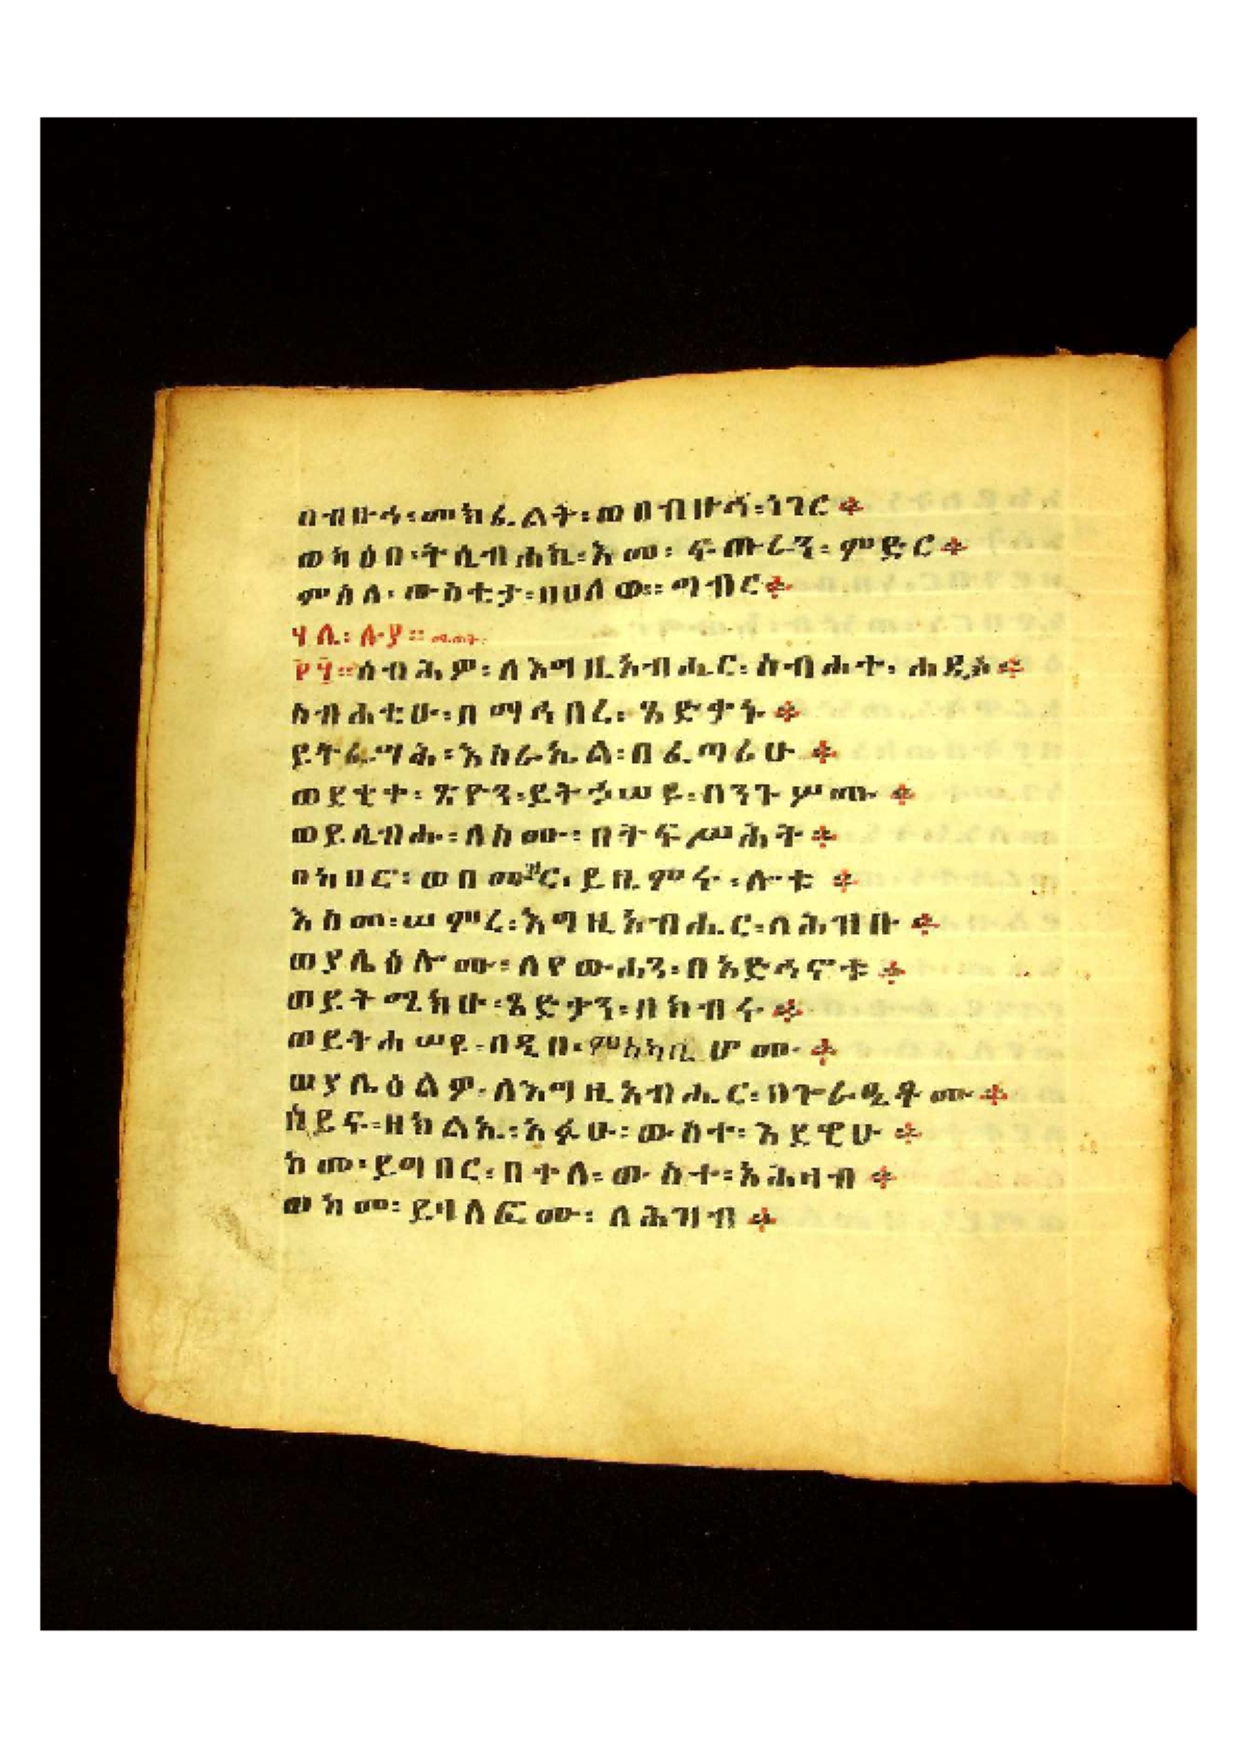 በብዙኅ፡መክፈልት፡ወበብዙኅ፡ነገር ።
ወካዕበ፡ትሴብሐኪ፡እመ፡ፍጡራን፡ምድር ።
ምስለ፡ውስቴታ፡ዘሀለወ፡፡ግብር ።
ሃሌ፡ሉያ፡፡
ሰብሕዎ፡ለእግዚአብሔር፡ስብሐተ፡ሐዲሰ ።
ስብሐቲሁ፡በማኅበረ፡ጻድቃኑ ።
ይትፌሣሕ፡እስራኤል፡በፈጣሪሁ ።
ወደቂተ፡ጽዮን፡ይትኃሠዩ፡በንጉሦሙ ።
ወይሴብሑ፡ለስሙ፡በትፍሥሕት ።
በከበሮ፡ወበመዝሙር፡ይዜምሩ፡ሎቱ ።
እስመ፡ሠምረ፡እግዚአብሔር፡በሕዝቡ ።
ወያሌዕሎሙ፡ለየውሐን፡በአድኅኖቱ ።
ወይትሜክሁ፡ጻድቃን፡በክብሩ ።
ወይትሐሠዩ፡በዲበ፡ምስካቢሆሙ ።
ወያሌዕልዎ፡ለእግዚአብሔር፡በጐራዒቶሙ ።
ሰይፍ፡ዘክልኤ፡አፉሁ፡ውስተ፡እደዊሁ ።
ከመ፡ይግበር፡በቀለ፡ውስተ፡አሕዛብ ።
ወከመ፡ይዛለፎሙ፡ለሕዝብ ።